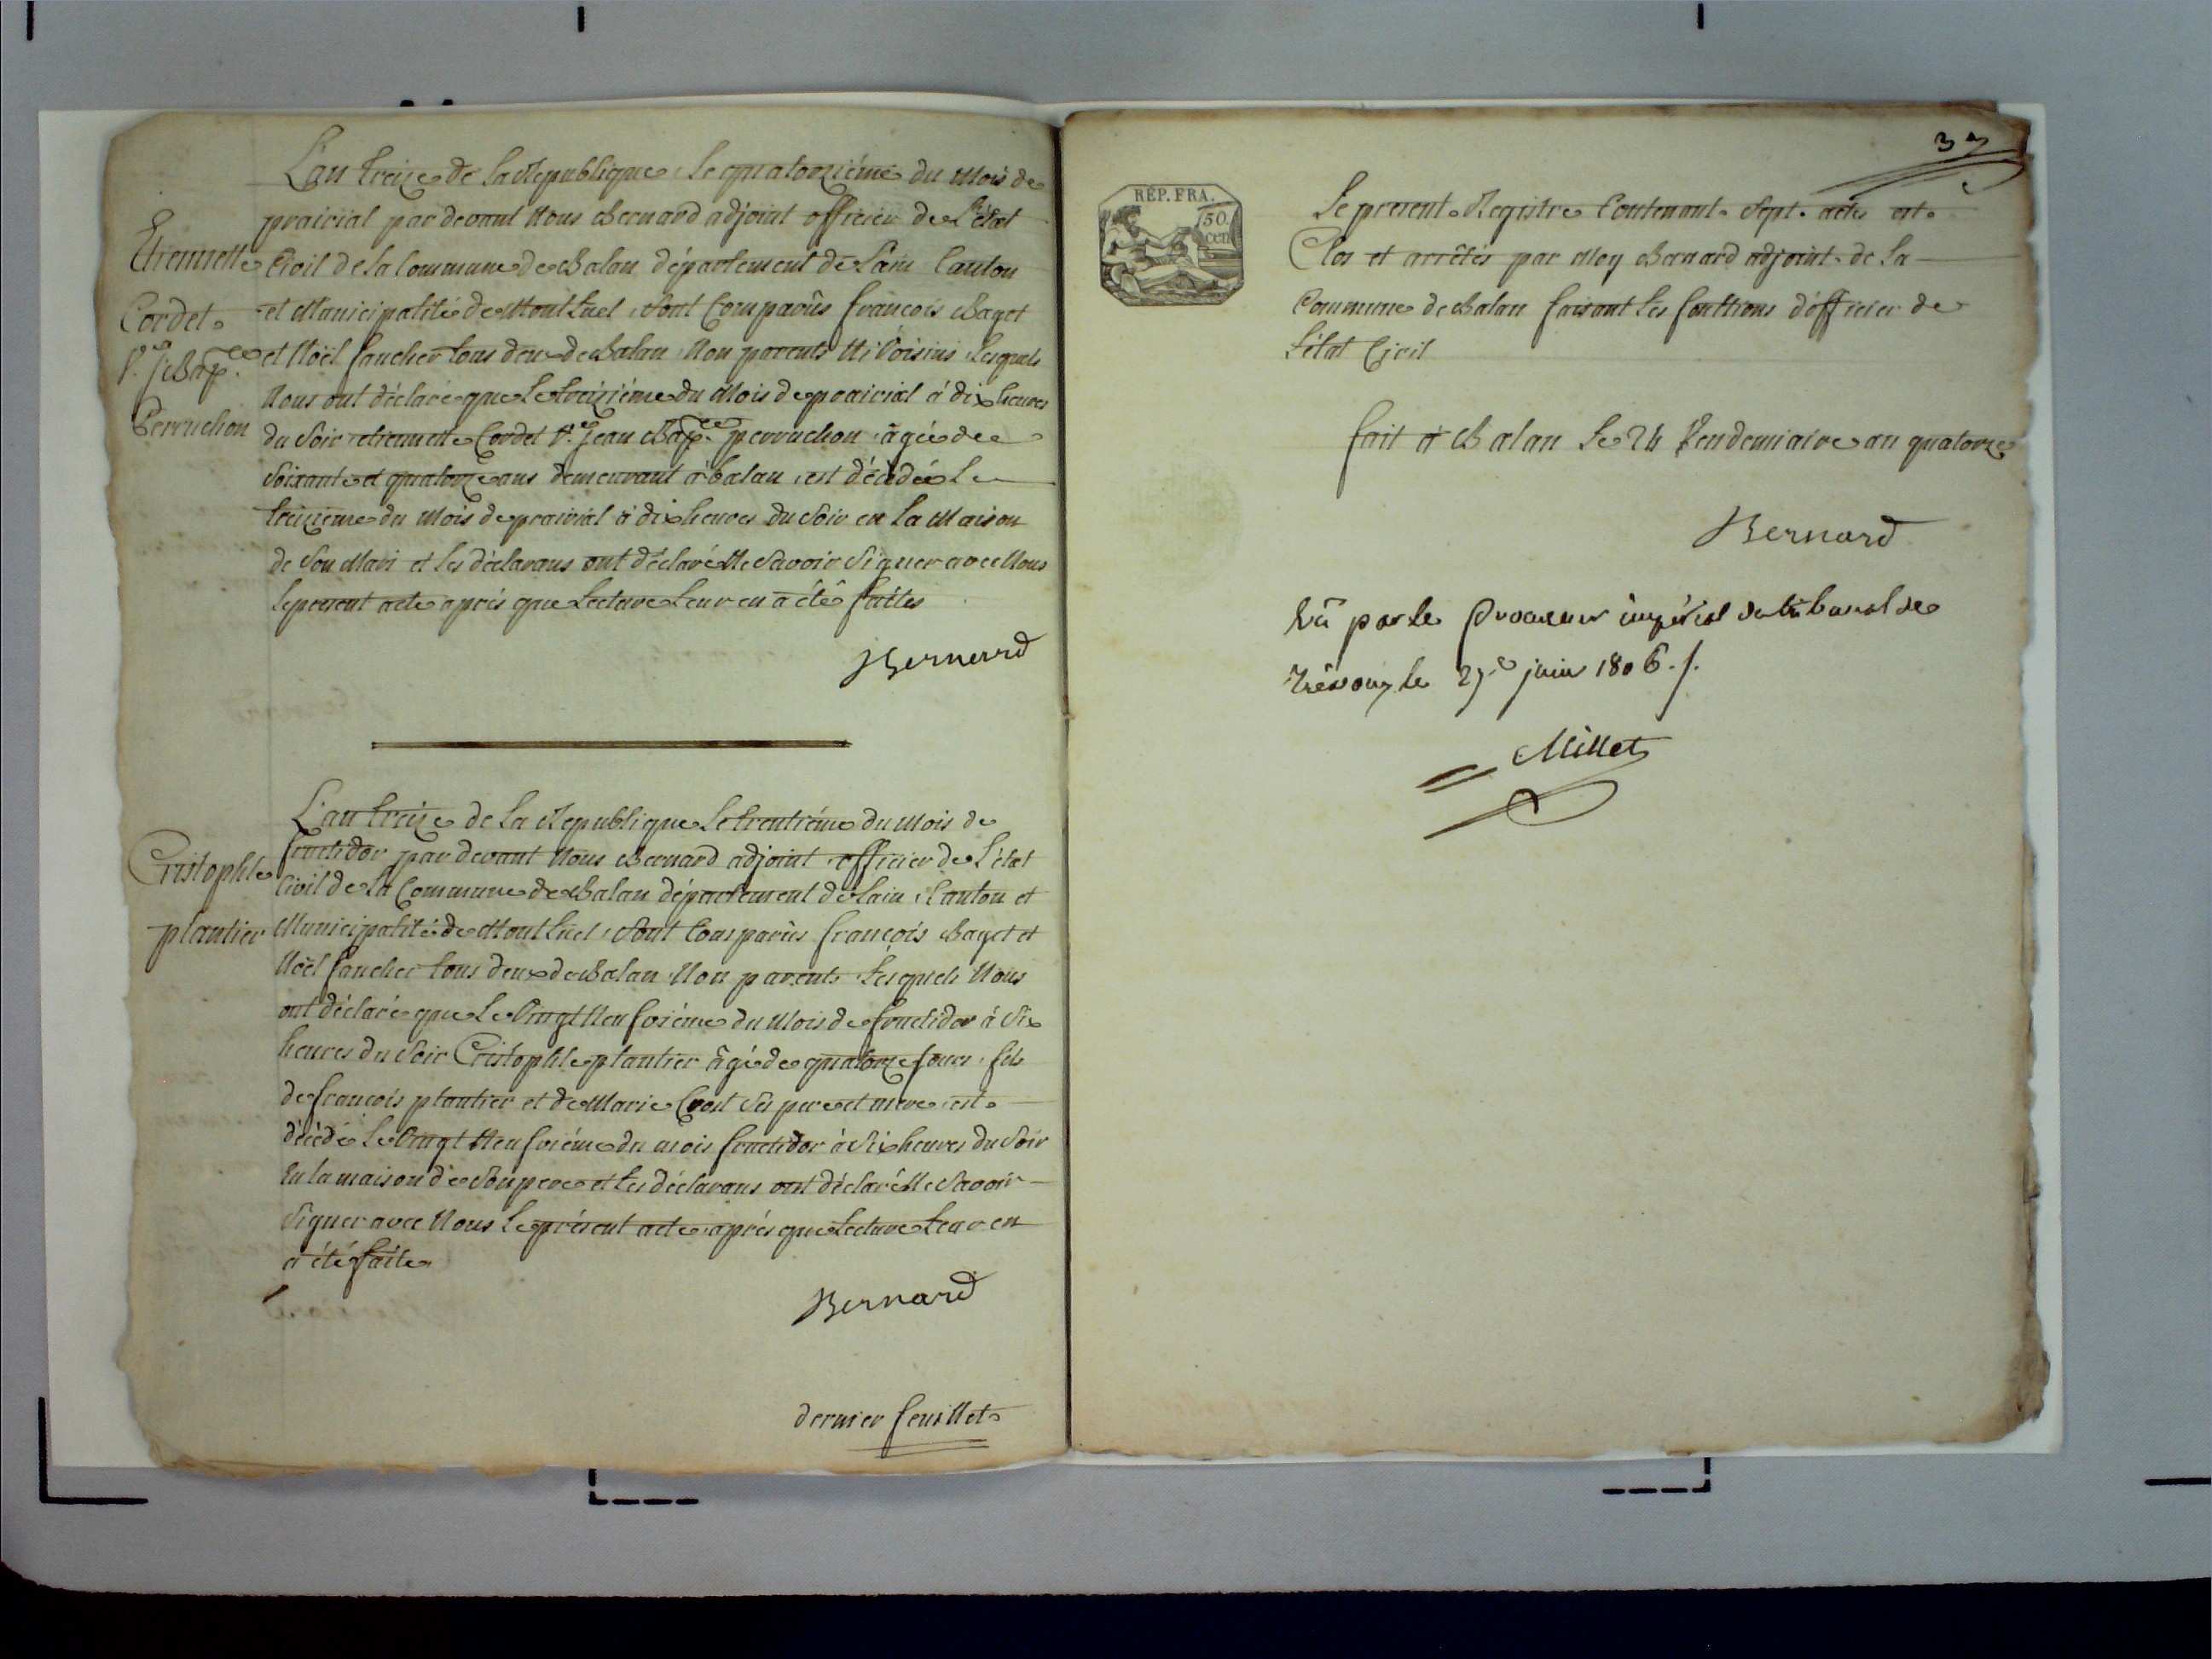 L'an treize de la Republique, le quatorziéme du Mois de
prairial par devant Nous Bernard adjoint officier de L'état
Civil de la Commune de Balan département de Lain Canton
et Municipalité de Montluel, sont Comparûs francois Baget
et Noël faucher tous deux de Balan Non parents Ni Voisins Lesquels
Nous ont déclaré que Le treiziéme du Mois de prairial à dix heures
du Soir etiennette Cordet f.e Jean Bap.te perruchon âgée de
Soixante et quatorze ans demeurant à balan, est décédée Le
treiziéme du Mois de prairial à dix heures du Soir en La Maison
de Son Mari et les déclarans ont déclaré Ne Savoir Signer avec Nous
Le present acte aprés que Lecture Leur en a été faites
Bernard
Etiennette
Cordet
f.e J Bap.te
Perruchon
L'an treize de la Republique Le trentiéme du Mois de
fructidor par devant Nous Bernard adjoint officier de L'état
Civil de La Commune de Balan département de Lain, Canton et
Municipalité de Montluel, Sont Comparûs francois Baget et
Noël faucher tous deux de Balan Non parents Lesquels Nous
ont déclaré que Le Vingt Neufviéme du Mois de fructidor à Six
heures du Soir Cristophle plantier âgé de quatorze Jours, fils
de francois plantier et de Marie Crost Ses pere et mere, est
décédé Le Vingt Neufviéme du mois fructidor à Six heures du Soir
En la maison de Son pere et Les déclarans ont déclaré Ne Savoir
Signer avec Nous Le présent acte aprés que Lecture Leur en
a été faite
Cristophle
plantier
Bernard
dernier feuillet
37
RÉP. FRA.
50
cen
Le present Registre Contenant Sept actes est
Clos et arrêtés par Moy Bernard adjoint de La
Commune de Balan faisant Les fonttions d'officier de
L'état Civil
fait à Balan Le 24 Vendemiaire an quatorze
Bernard
Vû par le Procureur impérial du tribunal de
Trévoux le 27.e juin 1806.
Millet